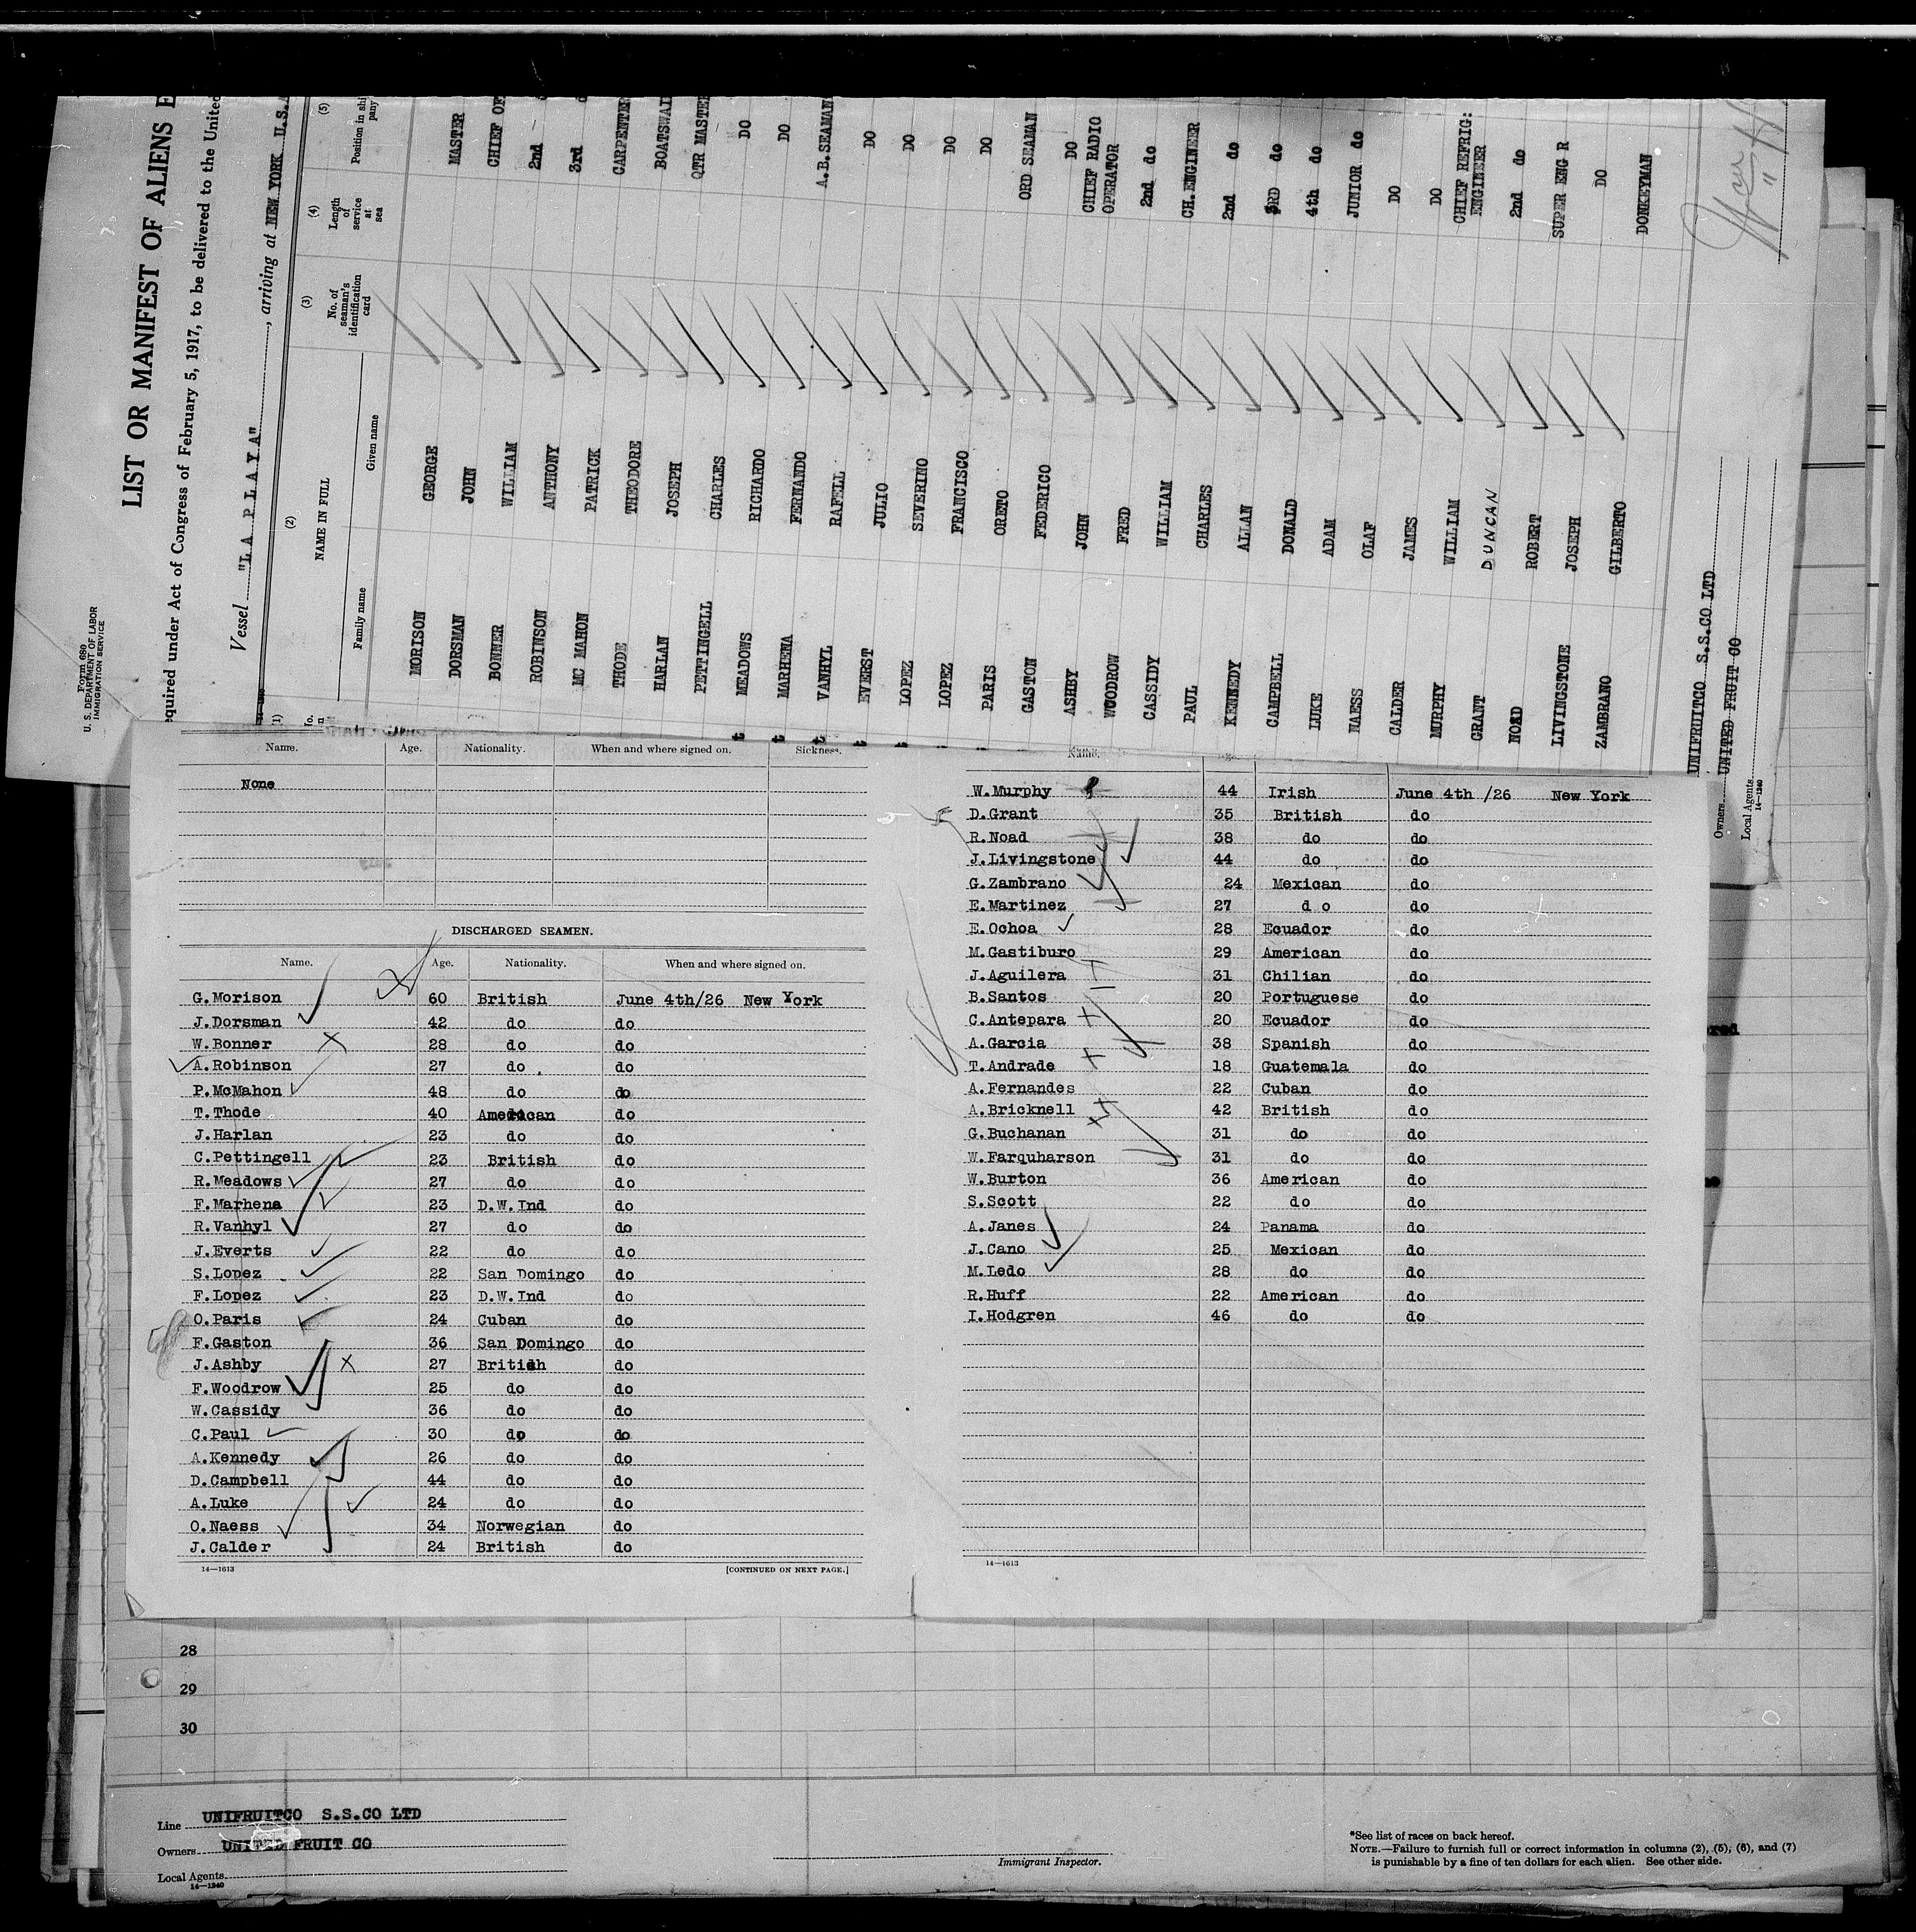 Form 680
U. S. DEPARTMENT OF LABOR
IMMIGRATION SERVICE
LIST OR MANIFEST OF ALIENS E
equired under Act of Congress of February 5, 1917, to be delivered to the United
Vessel "LA PLAYA", arriving at NEW YORK U.S.A
(1) (2) (3) (4) (5)
NAME IN FULL
No. of seaman's identification card
Length of service at sea
Position in shi pany
Family name Given name
MORISON GEORGE MASTER
DORSMAN JOHN CHIEF OF
BONNER WILLIAM 2nd
ROBINSON ANTHONY 3rd
MC MAHON PATRICK CARPENTER
THODE THEODORE BOATSWAI
HARLAN JOSEPH QTR MASTE
PETTINGELL CHARLES DO
MEADOWS RICHARDO DO
MARHENA FERNANDO A.B.SEAMAN
VANHYL RAFELL DO
EVERST JULIO DO
LOPEZ SEVERINO DO
LOPEZ FRANCISCO DO
PARIS ORETO ORD SEAMAN
GASTON FEDERICO DO
ASHBY JOHN CHIEF RADIO OPERATOR
WOODROW FRED 2nd do
CASSIDY WILLIAM CH.ENGINEER
PAUL CHARLES 2nd do
KENNEDY ALLAN 3RD do
CAMPBELL DONALD 4th do
LUKE ADAM JUNIOR do
NAESS OLAF DO
CALDER JAMES DO
MURPHY WILLIAM CHIEF REFRAIG: ENGINEER
GRANT DUNCAN 2nd do
NOAD ROBERT SUPER ENG R
LIVINGSTONE JOSEPH DO
ZAMBRANO GILBERTO DONKEYMAN
UNIFRUITCO S.S.CO LTD
Owners UNITED FRUIT CO
Local Agents
14—1240
Name. Age. Nationality. When and where signed on. Sickness.
None
DISCHARGED SEAMEN.
Name. Age. Nationality. When and where signed on.
G.Morison 60 British June 4th/26 New York
J.Dorsman 42 do do
W.Bonner 28 do do
A.Robinson 27 do do
P.McMahon 48 do do
T.Thode 40 American do
J.Harlan 23 do do
C.Pettingell 23 British do
R.Meadows 27 do do
F.Marhena 23 D.W.Ind do
R.Vanhyl 27 do do
J.Everts 22 do do
S.Lopez 22 San Domingo do
F.Lopez 23 D.W.Ind do
O.Paris 24 Cuban do
F.Gaston 36 San Domingo do
J.Ashby 27 British do
F.Woodrow 25 do do
W.Cassidy 36 do do
C.Paul 30 do do
A.Kennedy 26 do do
D.Campbell 44 do do
A.Luke 24 do do
O.Naess 34 Norwegian do
J.Calder 24 British do
14—1613 [CONTINUED ON NEXT PAGE.]
Name.
W.Murphy 44 Irish June 4th /26 New York
D.Grant 35 British do
R.Noad 38 do do
J.Livingstone 44 do do
G.Zambrano 24 Mexican do
E.Martinez 27 d o do
E.Ochoa 28 Ecuador do
M.Gastiburo 29 American do
J.Aguilera 31 Chilian do
B.Santos 20 Portuguese do
C.Antepara 20 Ecuador do
A.Garcia 38 Spanish do
T.Andrade 18 Guatemala do
A.Fernandes 22 Cuban do
A.Bricknell 42 British do
G.Buchanan 31 do do
W.Farquharson 31 do do
W.Burton 36 American do
S.Scott 22 do do
A.Janes 24 Panama do
J.Cano 25 Mexican do
M.Ledo 28 do do
R.Huff 22 American do
I.Hodgren 46 do do
14—1613
28
29
30
Line UNIFRUITCO S.S.CO LTD
Owners UNITED FRUIT CO
Local Agents
14—1240
Immigrant Inspector.
*See list of races on back hereof.
NOTE.—Failure to furnish full or correct information in columns (2), (5), (6), and (7)
is punishable by a fine of ten dollars for each alien. See other side.